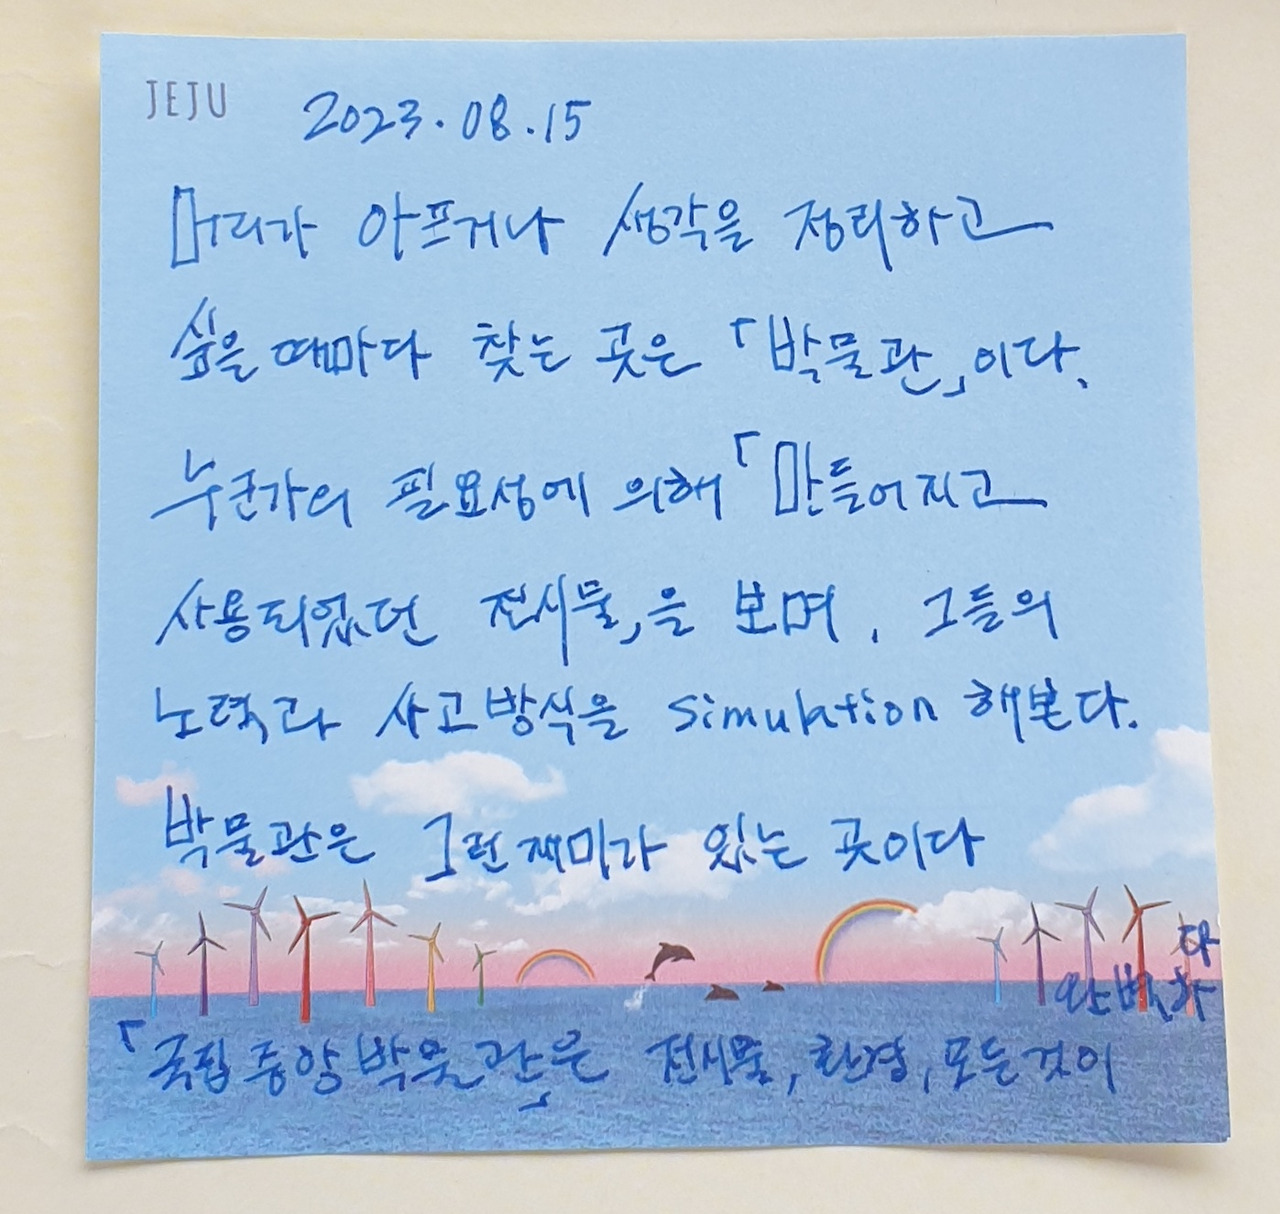 JEJU 2023.08.15
머리가 아프거나 생각을 정리하고
싶을 때마다 찾는 곳은 「박물관」이다.
누군가의 필요성에 의해 「만들어지고
사용되었던 전시물」을 보며, 그들의
노력과 사고방식을 simulation 해본다.
박물관은 그런 재미가 있는 곳이다
「국립중앙박물관」은 전시물, 환경, 모든것이
완벽하
다